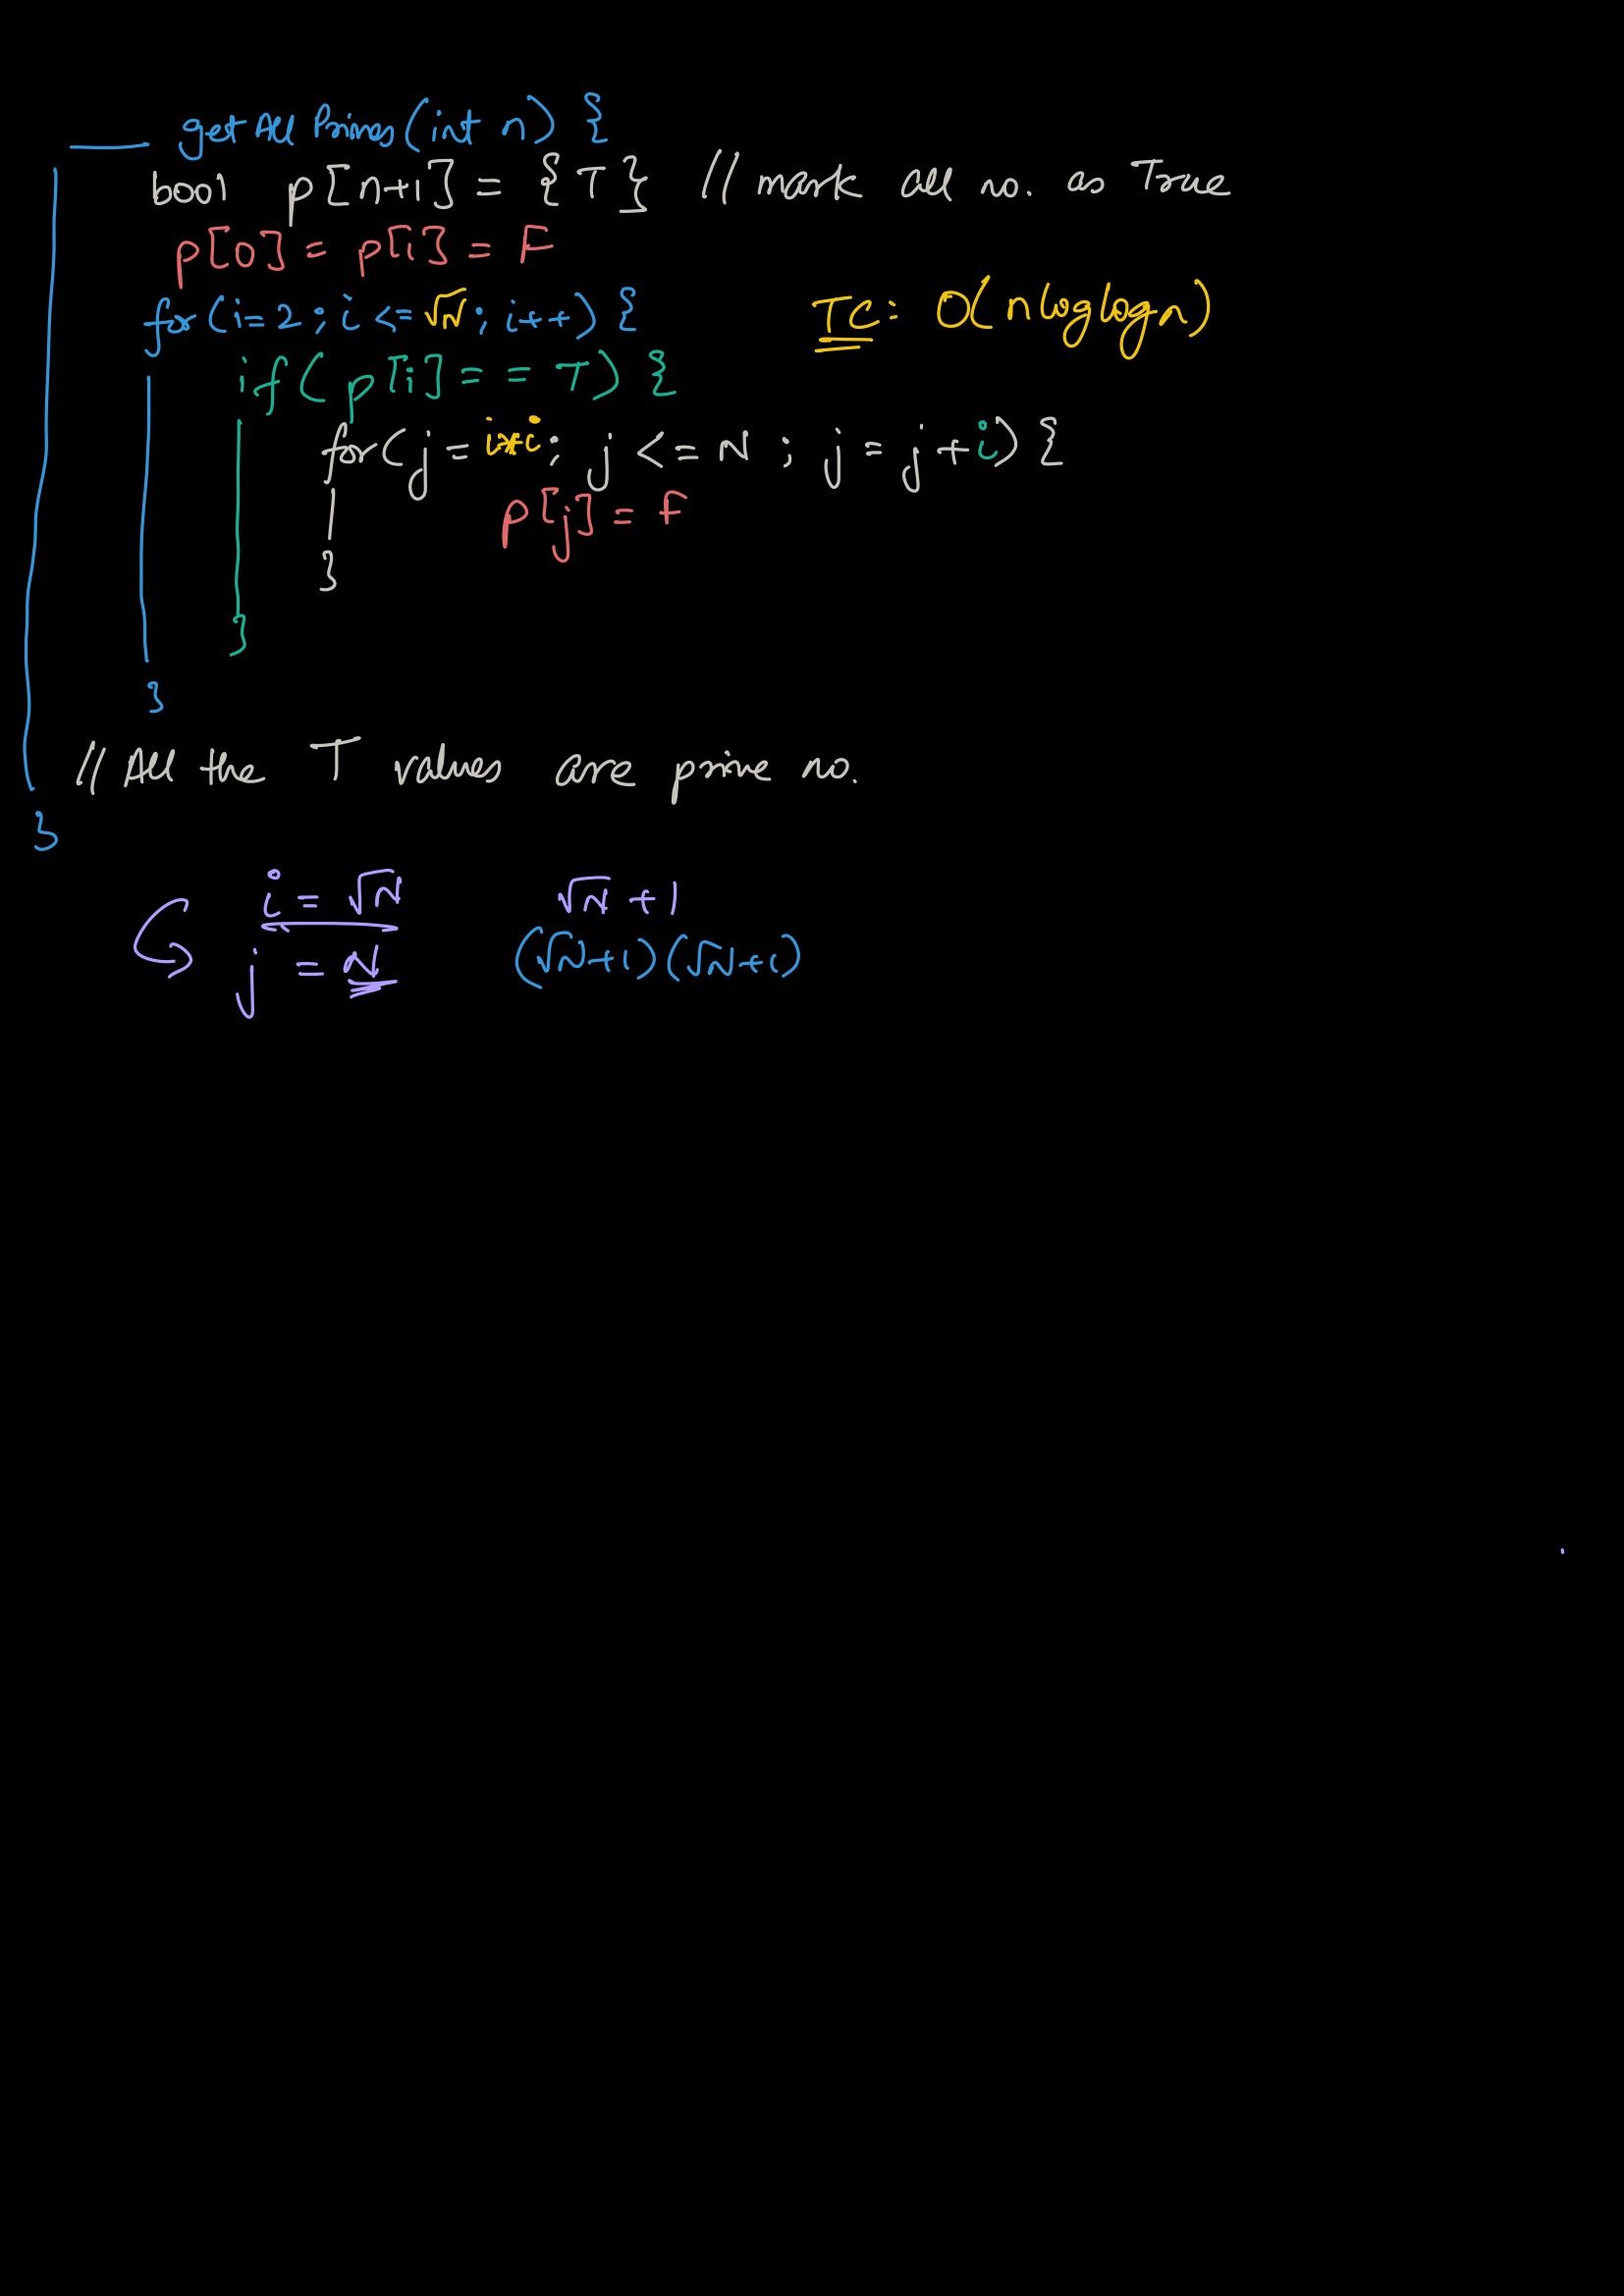 ___ getAllPrimes(int n) {
bool p[n+1] = {T} // mark all no. as True
p[0] = p[1] = F
for(i=2; i<=√N; i++) {
TC: O(n log log n)
if(p[i] == T) {
for(j = i*i; j <= N; j = j+i) {
p[j] = F
}
}
}
// All the T values are prime no.
}
i = √N
j = N
√N + 1
(√N+1)(√N+1)